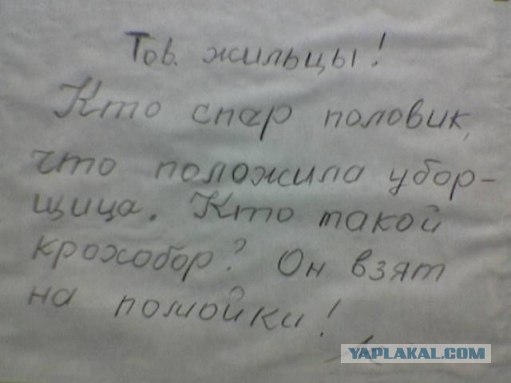 Тов. жильцы!
Кто спер половик,
что положила убор-
щица. Кто такой
крохобор? Он взят
на помойки!
YAPLAKAL.COM